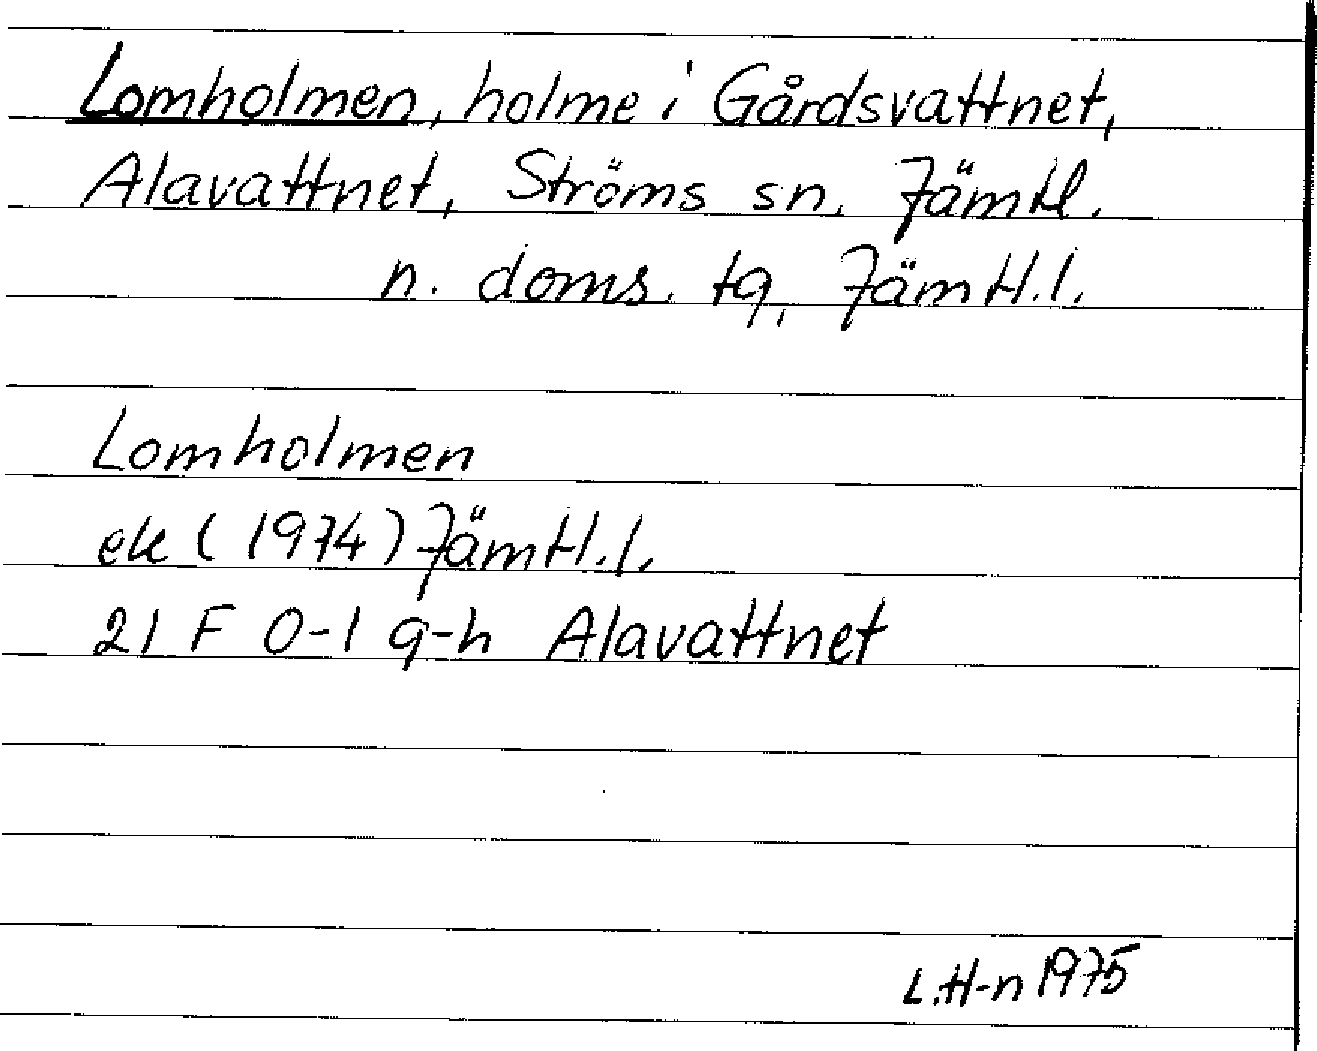 Lomholmen, holme i Gårdsvattnet,
Alavattnet, Ströms sn, Jämtl.
n. doms. tg, Jämtl.l.
Lomholmen
ek (1974) Jämtl.l.
21 F 0-1 g-h Alavattnet
L.H-n 1975